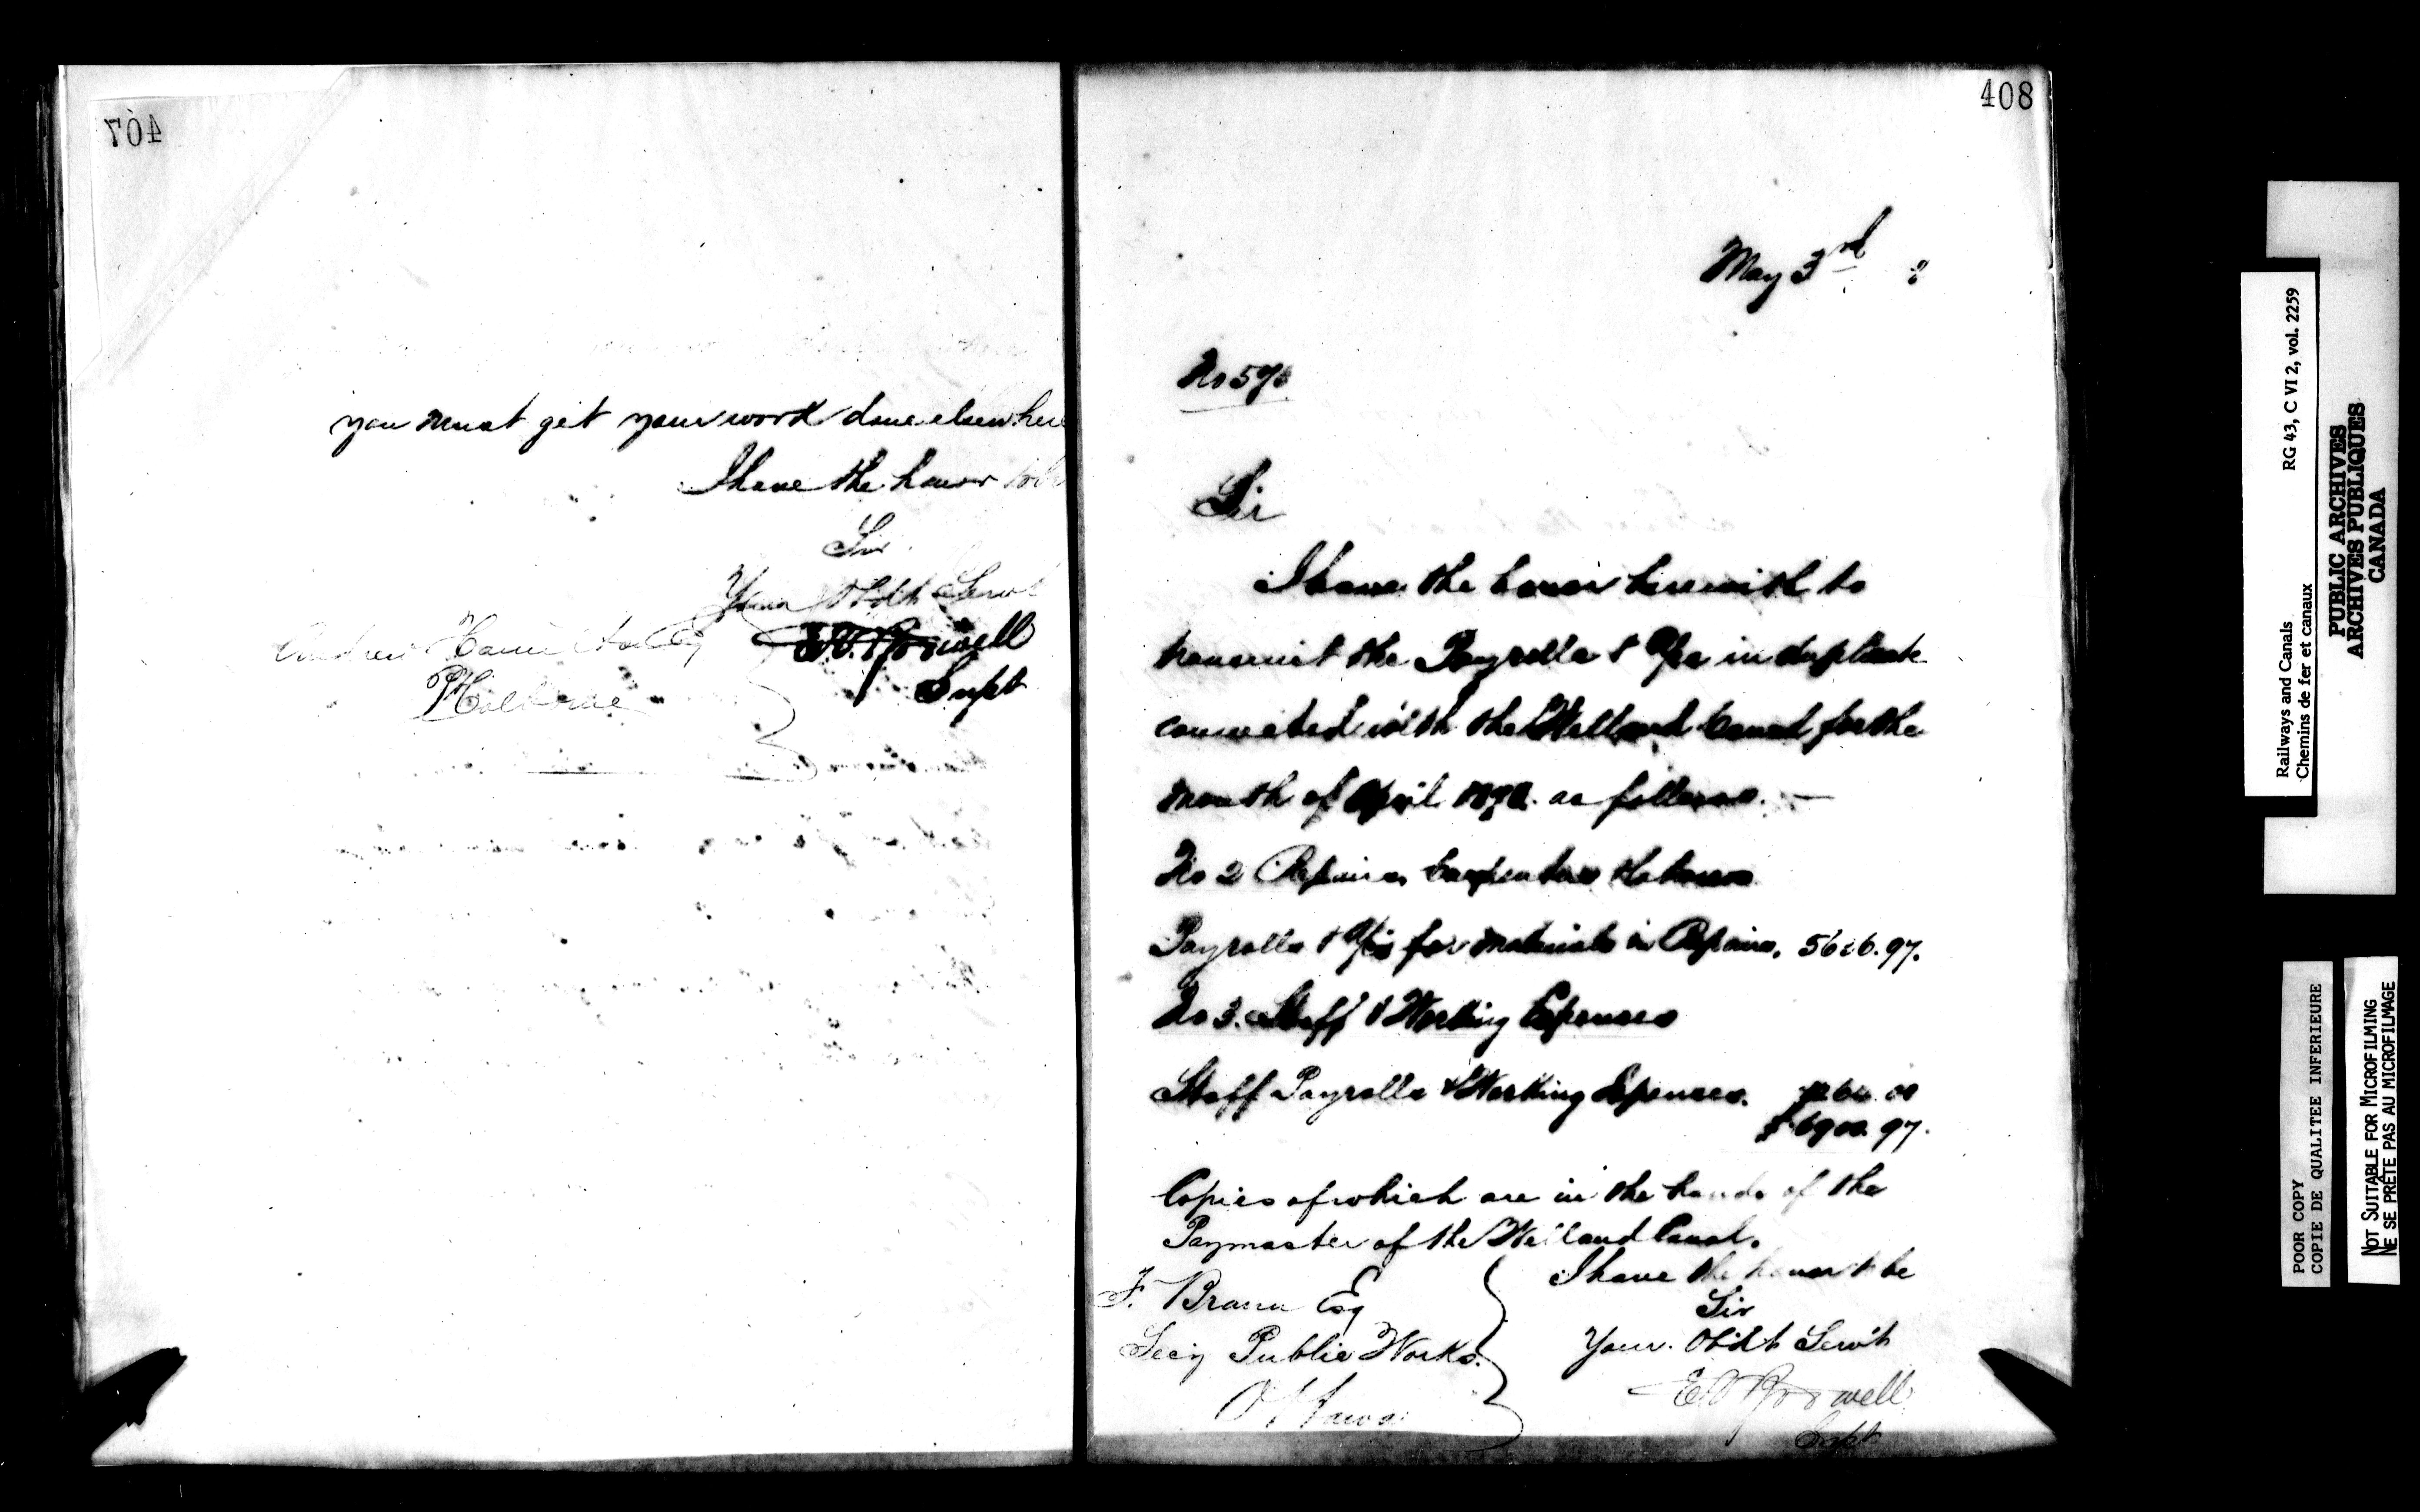 407
you must get your work done elsewhere
I have the honor to be
Sir
Your Obdt Servt
E.V. Bodwell
Supt
Andrew Hamilton Esq
408
May 3rd 8
No
Sir
I have the honor herewith to
transmit the Payrolls & a/cs in duplicate
connected with the Welland Canal for the
month of April as follows. —
No 2 Repairs, Carpenters
Payrolls & a/cs for materials in Repairs. .97.
No 3. Staff & Working Expenses
Staff Payrolls & Working Expenses. 00
$ .97.
Copies of which are in the hands of the
Paymaster of the Welland Canal.
I have the honor to be
Sir
Your. Obd't Serv't
E.V. Bodwell
Supt
F. Braun Esq
Sec'y Public Works.
Ottawa
Railways and Canals RG 43, C VI 2, vol. 2259
Chemins de fer et canaux
PUBLIC ARCHIVES
ARCHIVES PUBLIQUES
CANADA
POOR COPY
COPIE DE QUALITEE INFERIEURE
NOT SUITABLE FOR MICROFILMING
NE SE PRÊTE PAS AU MICROFILMAGE